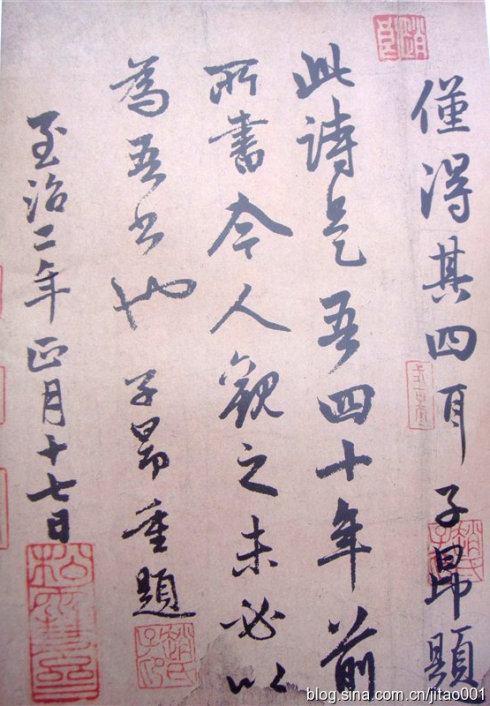 僅得其四耳子昂題
此诗是吾四十年前
所書今人觀之未必以
為吾书也子昂重題
至治二年正月十七日
趙
趙氏子昂
松雪齋
趙氏子昂
blog.sina.com.cn/jitao001